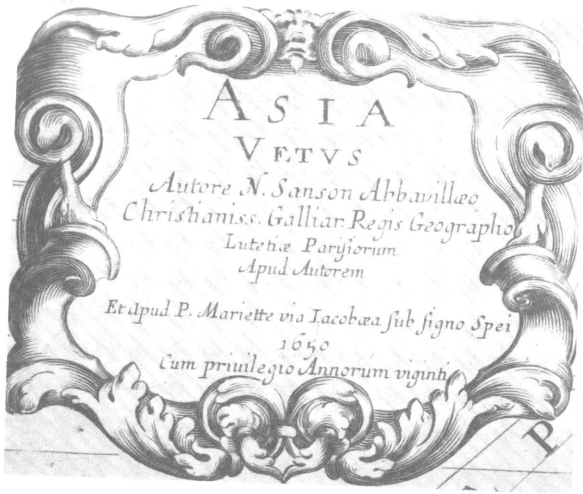 ASIA
VETVS
Autore N. Sanson Abbavillæo
Christianiss. Galliar. Regis Geographo
Lutetiæ Parisiorum
Apud Autorem
Et apud P. Mariette via Iacobæa sub signo Spei
1650
Cum privilegio Annorum viginti
P